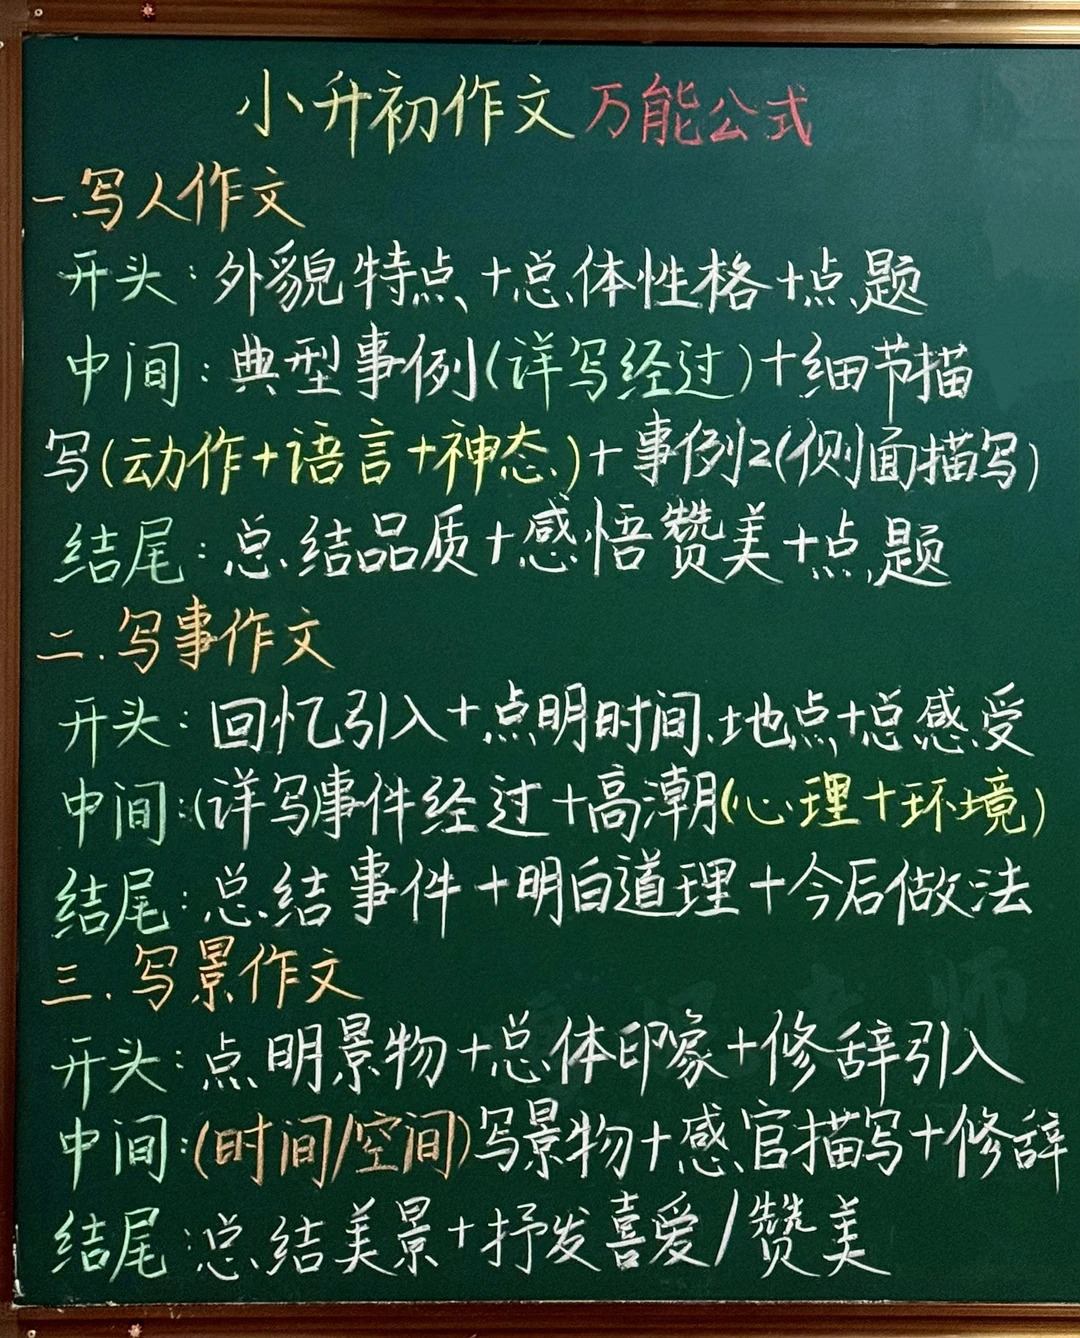 小升初作文万能公式
一.写人作文
开头:外貌特点+总体性格+点题
中间:典型事例(详写经过)+细节描
写(动作+语言+神态)+事例2(侧面描写)
结尾:总结品质+感悟赞美+点题
二.写事作文
开头:回忆引入+点明时间、地点+总感受
中间:(详写)事件经过+高潮(心理+环境)
结尾:总结事件+明白道理+今后做法
三.写景作文
开头:点明景物+总体印象+修辞引入
中间:(时间/空间)写景物+感官描写+修辞
结尾:总结美景+抒发喜爱/赞美